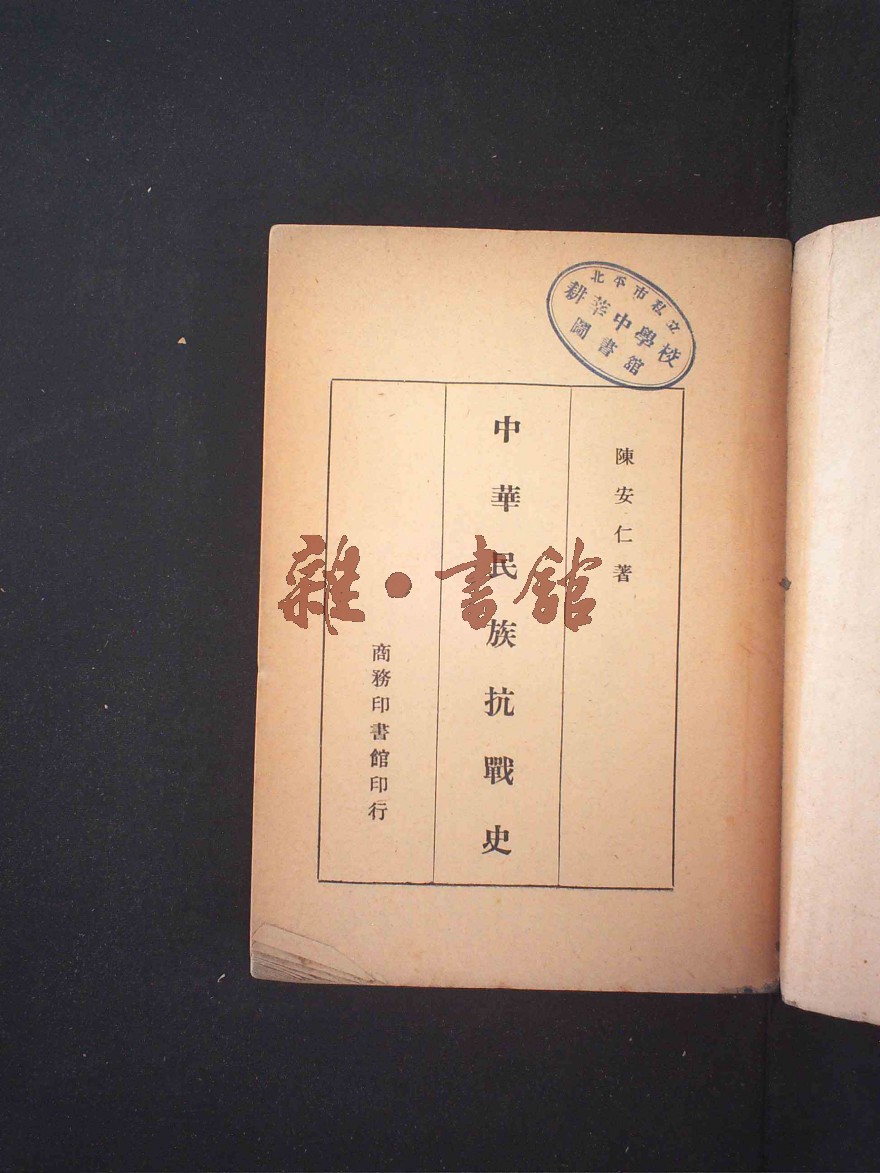 北平市私立
耕莘中學校
圖書館
陳安仁著
中華民族抗戰史
商務印書館印行
雜·書館